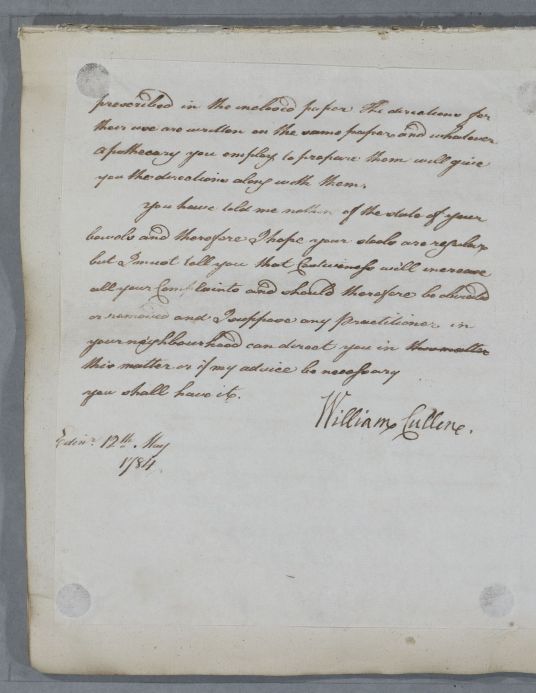 prescribed in the inclosed paper The directions for
their use are written on the same paper and whatever
Apothecary you employ to prepare them will give
you the directions along with them.
You have told me nothin of the state of your
bowels and therefore I hope your stools are regular
but I must tell you that Costiveness will increase
all your Complaints and should therefore be shund
or removed and I suppose any Practitioner in
your neighbourhood can direct you in this matter
this matter or if my advice be necessary
you shall have it.
William Cullen.
Edinr. 12th. May
1784.